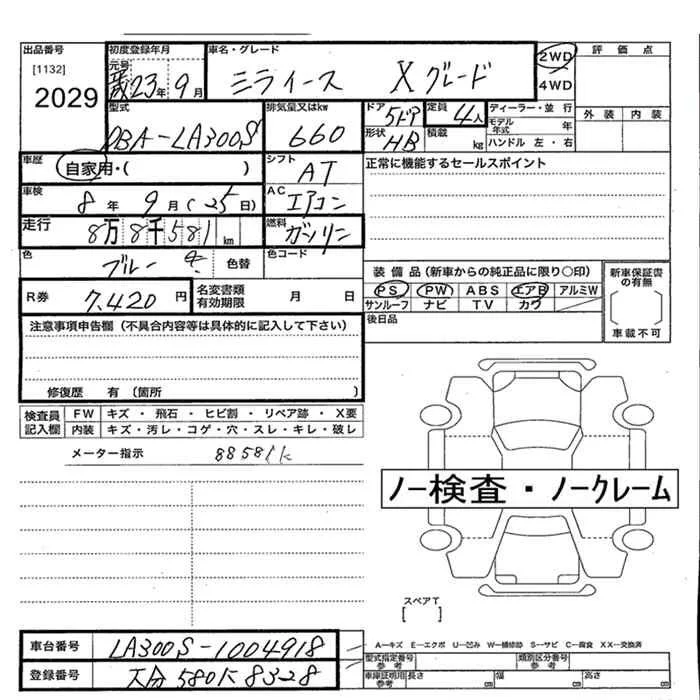 出品番号 初度登録年月 車名・グレード 2WD 評価点
[1132] 元号 平23年9月 ミライース Xグレード 4WD
2029 外装 内装
型式 排気量又はkw ドア 5ドア 定員 4人 ディーラー・並行
DBA-LA300S 660 形状 HB 積載 kg モデル年式 年
ハンドル 左・右
車歴 自家用・( ) シフト AT 正常に機能するセールスポイント
車検 8年9月(25日) AC エアコン
走行 8万8千581km 燃料 ガソリン
色 ブルー 色替 色コード
装備品(新車からの純正品に限り○印) 新車保証書の有無
R券 7,420円 名変書類有効期限 月 日 PS PW ABS エアB アルミW
サンルーフ ナビ TV カワ
注意事項申告欄(不具合内容等は具体的に記入して下さい) 後日品 車載不可
修復歴 有(箇所 )
検査員記入欄 FW キズ・飛石・ヒビ割・リペア跡・X要
内装 キズ・汚レ・コゲ・穴・スレ・キレ・破レ
メーター指示 88581k
ノー検査・ノークレーム
スペアT
[ ]
A-キズ E-エクボ U-凹み W-補修跡 S-サビ C-腐食 XX-交換済
車台番号 LA300S-1004918 型式指定番号参考 類別区分番号参考
登録番号 大分580に8328 車庫証明用参考 長さ 幅 高さ